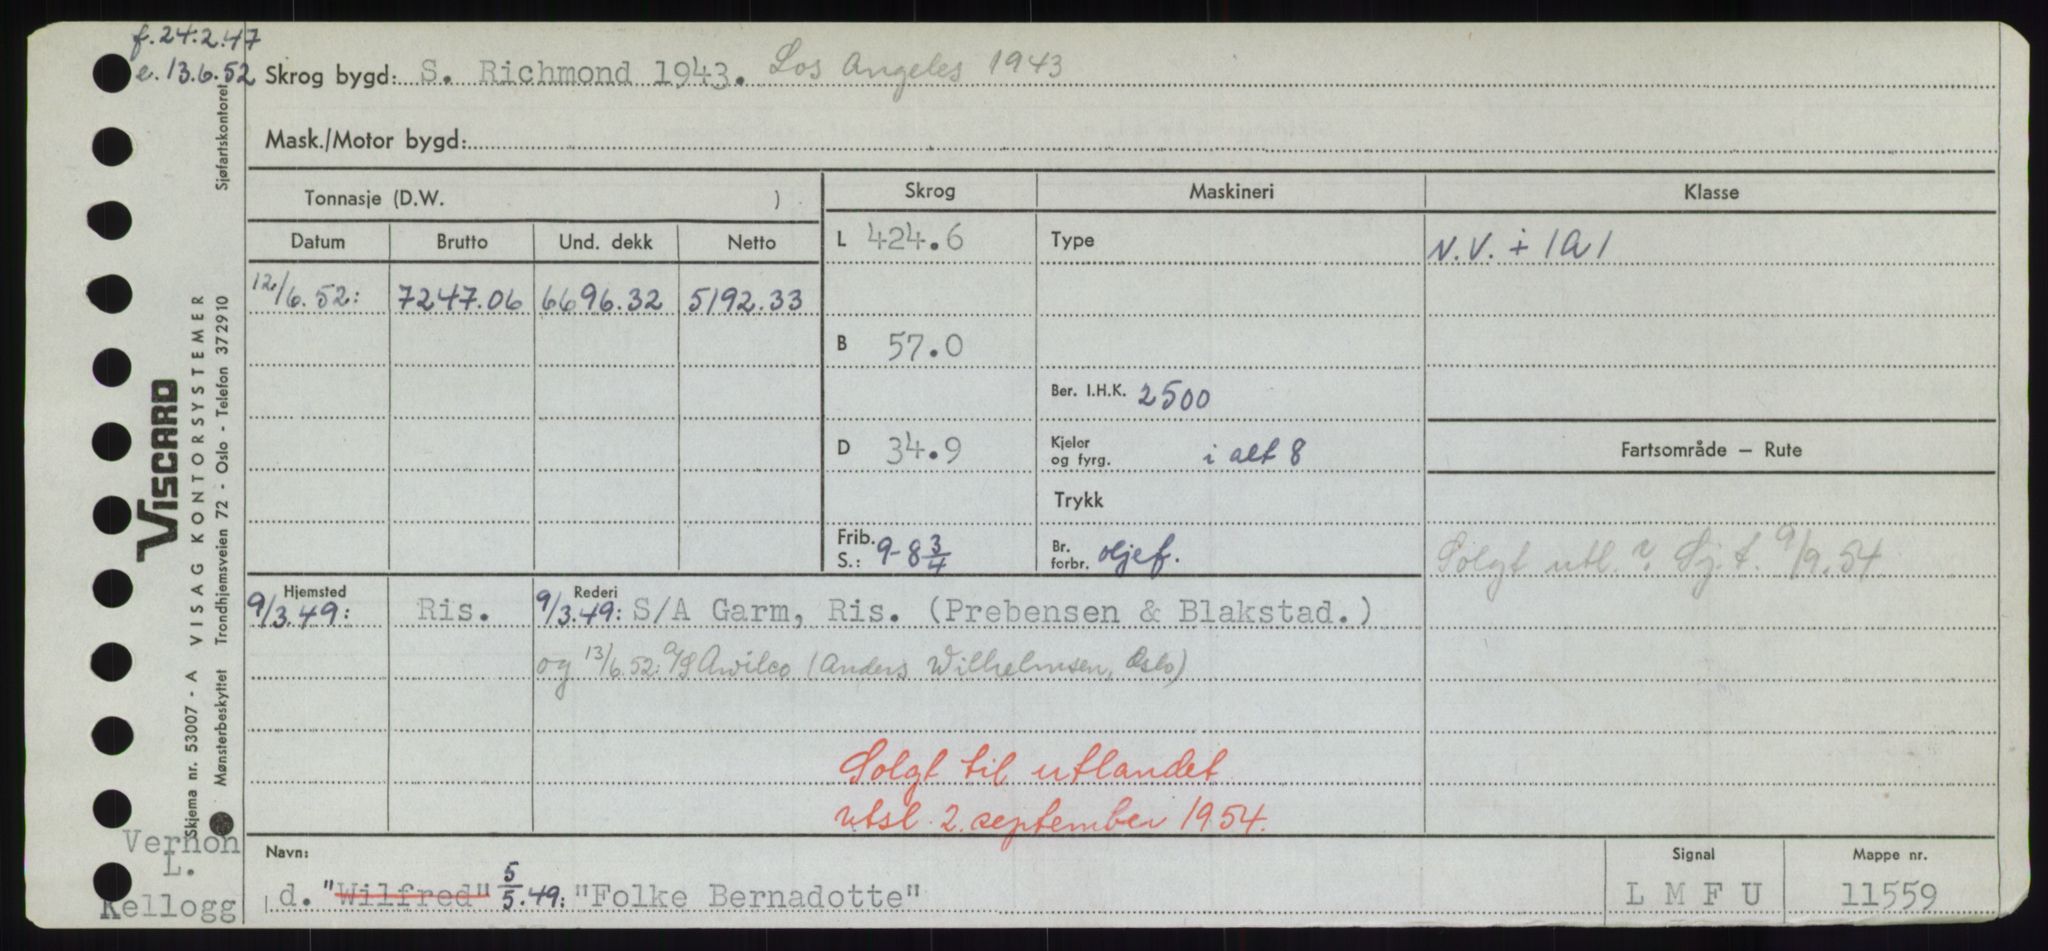 f. 24.2.47
e. 13.6.52
Skrog bygd: S. Richmond 1943. Los Angeles 1943
Mask./Motor bygd:
Tonnasje (D.W. )
Skrog Maskineri Klasse
Datum Brutto Und. dekk Netto
L 424.6 Type N.V. + 1A1
12/6.52: 7247.06 6696.32 5192.33
B 57.0
Ber. I.H.K. 2500
D 34.9 Kjeler og fyrg. i alt 8
Fartsområde – Rute
Trykk
Frib. S.: 9-8 3/4 Br. forbr. oljef.
Solgt utl. ? Sj.t. 9/9.54
Hjemsted Rederi
9/3.49: Ris. 9/3.49: S/A Garm, Ris. (Prebensen & Blakstad.)
og 13/6.52: A/S Awilco (Anders Wilhelmsen, Oslo)
Solgt til utlandet
utsl. 2. september 1954.
Navn: Signal Mappe nr.
d. "Wilfred" 5/5.49: "Folke Bernadotte" LMFU 11559
Vernon
L.
Kellogg
VISCARD
Skjema nr. 53007 - A VISAG KONTORSYSTEMER
Mønsterbeskyttet Trondhjemsveien 72 - Oslo - Telefon 372910 Sjøfartskontoret